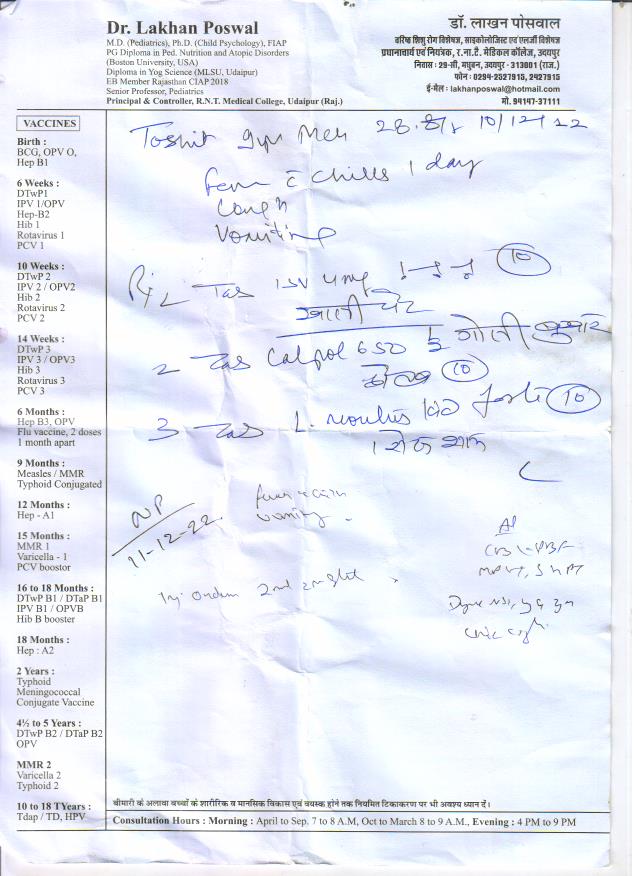 Dr. Lakhan Poswal
M.D. (Pediatrics), Ph.D. (Child Psychology), FIAP
PG Diploma in Ped. Nutrition and Atopic Disorders
(Boston University, USA)
Diploma in Yog Science (MLSU, Udaipur)
EB Member Rajasthan CIAP 2018
Senior Professor, Pediatrics
Principal & Controller, R.N.T. Medical College, Udaipur (Raj.)
डॉ. लाखन पोसवाल
वरिष्ठ शिशु रोग विशेषज्ञ, साइकोलोजिस्ट एवं एलर्जी विशेषज्ञ
प्रधानाचार्य एवं नियंत्रक, र.ना.टै. मेडिकल कॉलेज, उदयपुर
निवास : 29-सी, मधुबन, उदयपुर - 313001 (राज.)
फोन : 0294-2527915, 2427915
ई-मैल : lakhanposwal@hotmail.com
मो. 94147-37111
VACCINES
Birth :
BCG, OPV O,
Hep B1
6 Weeks :
DTwP1
IPV 1/OPV
Hep-B2
Hib 1
Rotavirus 1
PCV 1
10 Weeks :
DTwP 2
IPV 2 / OPV2
Hib 2
Rotavirus 2
PCV 2
14 Weeks :
DTwP 3
IPV 3 / OPV3
Hib 3
Rotavirus 3
PCV 3
6 Months :
Hep B3, OPV
Flu vaccine, 2 doses
1 month apart
9 Months :
Measles / MMR
Typhoid Conjugated
12 Months :
Hep - A1
15 Months :
MMR 1
Varicella - 1
PCV boostor
16 to 18 Months :
DTwP B1 / DTaP B1
IPV B1 / OPVB
Hib B booster
18 Months :
Hep : A2
2 Years :
Typhoid
Meningococcal
Conjugate Vaccine
4½ to 5 Years :
DTwP B2 / DTaP B2
OPV
MMR 2
Varicella 2
Typhoid 2
10 to 18 TYears :
Tdap / TD, HPV
Toshit 9yr 10/12/22
c̄ chills 1 day
Cough
Vomiting
4mg 10
खाली पेट
2 Tab Calpol 650 गोली बुखार
10
3 Tab forte 10
11-12-22
बीमारी के अलावा बच्चों के शारीरिक व मानसिक विकास एवं वयस्क होने तक नियमित टिकाकरण पर भी अवश्य ध्यान दें।
Consultation Hours : Morning : April to Sep. 7 to 8 A.M, Oct to March 8 to 9 A.M., Evening : 4 PM to 9 PM